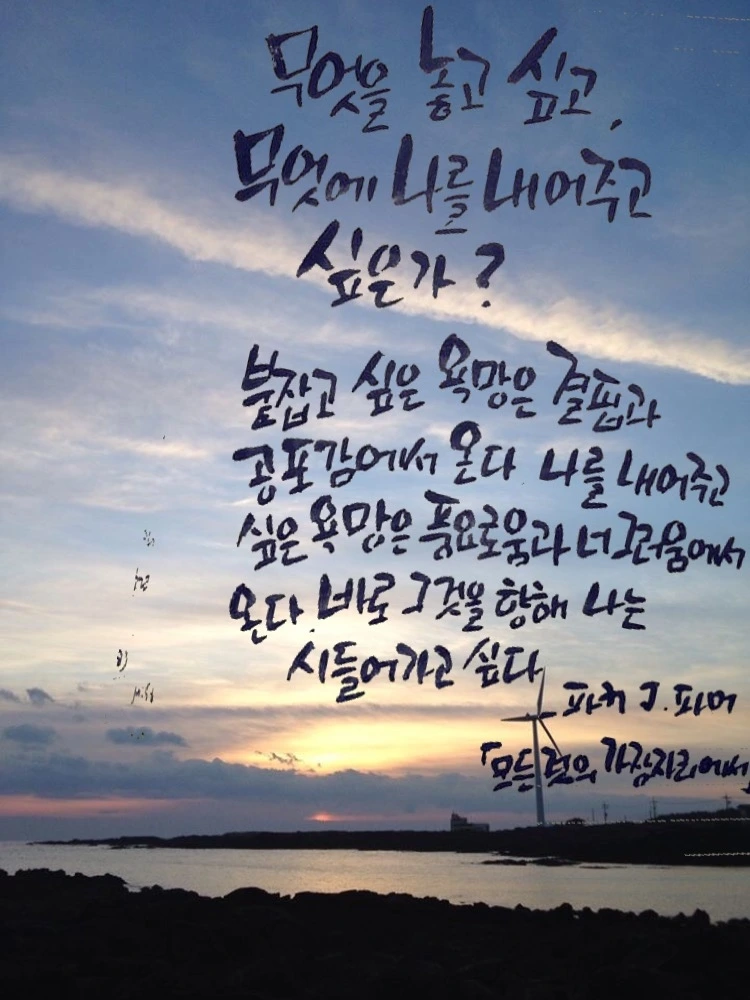 무엇을 놓고 싶고,
무엇에 나를 내어주고
싶은가?
붙잡고 싶은 욕망은 결핍과
공포감에서 온다 나를 내어주고
싶은 욕망은 풍요로움과 너그러움에서
온다. 바로 그것을 향해 나는
시들어가고 싶다
파커 J. 파머
「모든 것의 가장자리에서」